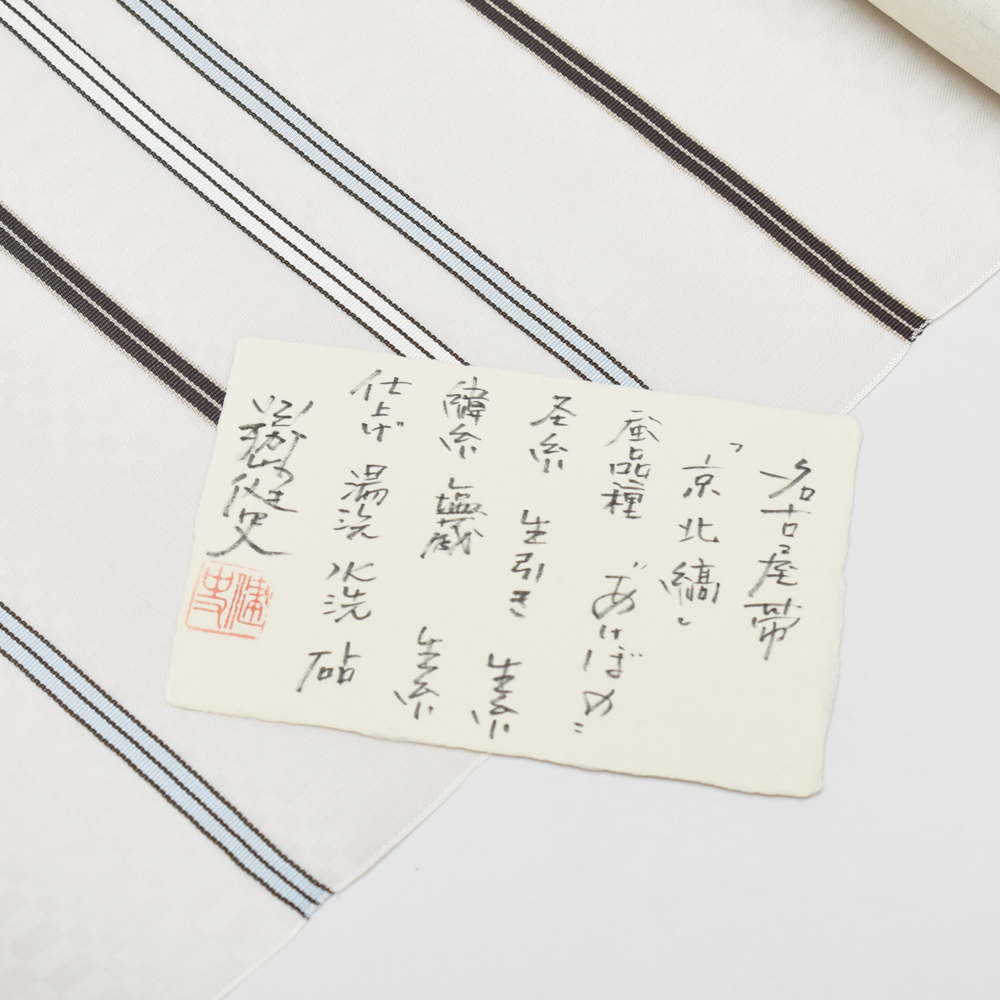 名古屋帯
「京北縞」
蚕品種 〝あけぼの〟
圣糸 生引き 生糸
緯糸 鹽蔵 生糸
仕上げ 湯洗 水洗 砧
健史
健史